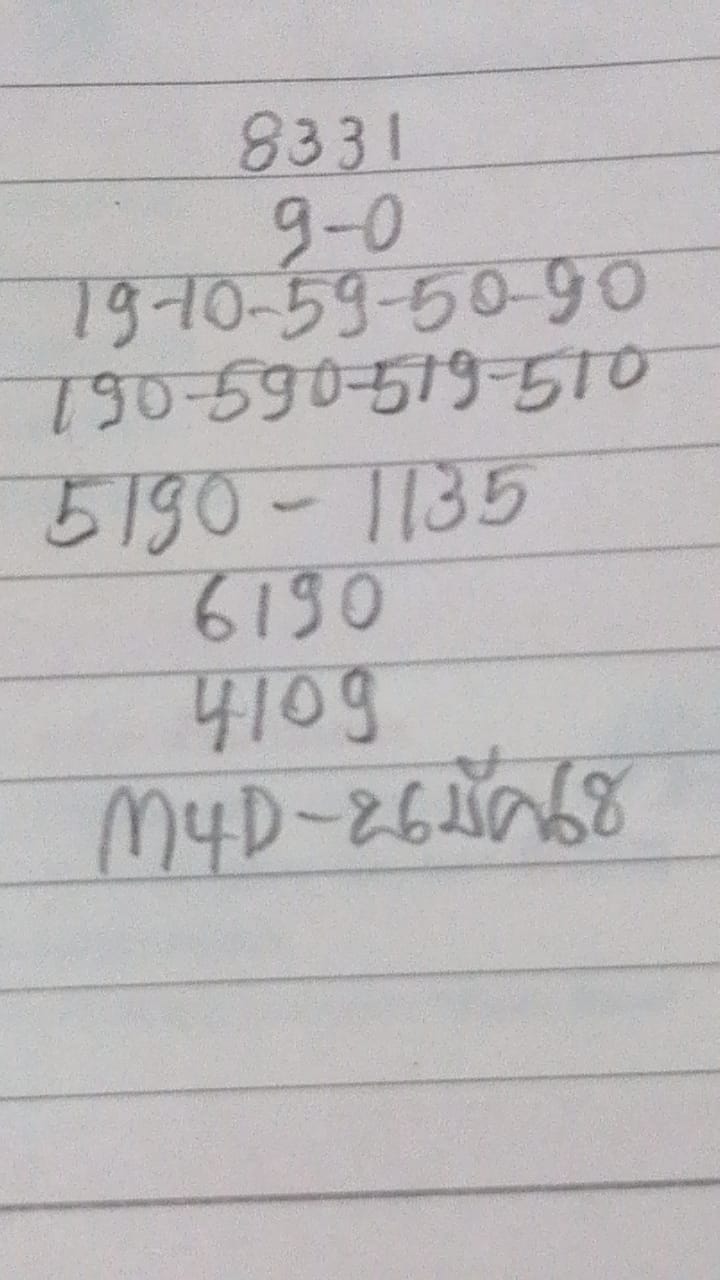 8331
9-0
19-10-59-50-90
190-590-519-510
5190 - 1135
6190
4109
M4D-26มีค68